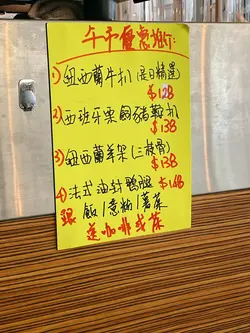 午予優惠推介:
1) 紐西蘭牛扒 (是日精選)
$128
2) 西班牙栗飼豬鞍扒
$138
3) 紐西蘭羊架 (三枝骨)
$138
4) 法式油封鴨腿 $148
跟 飯/意粉/薯菜
送咖啡或茶